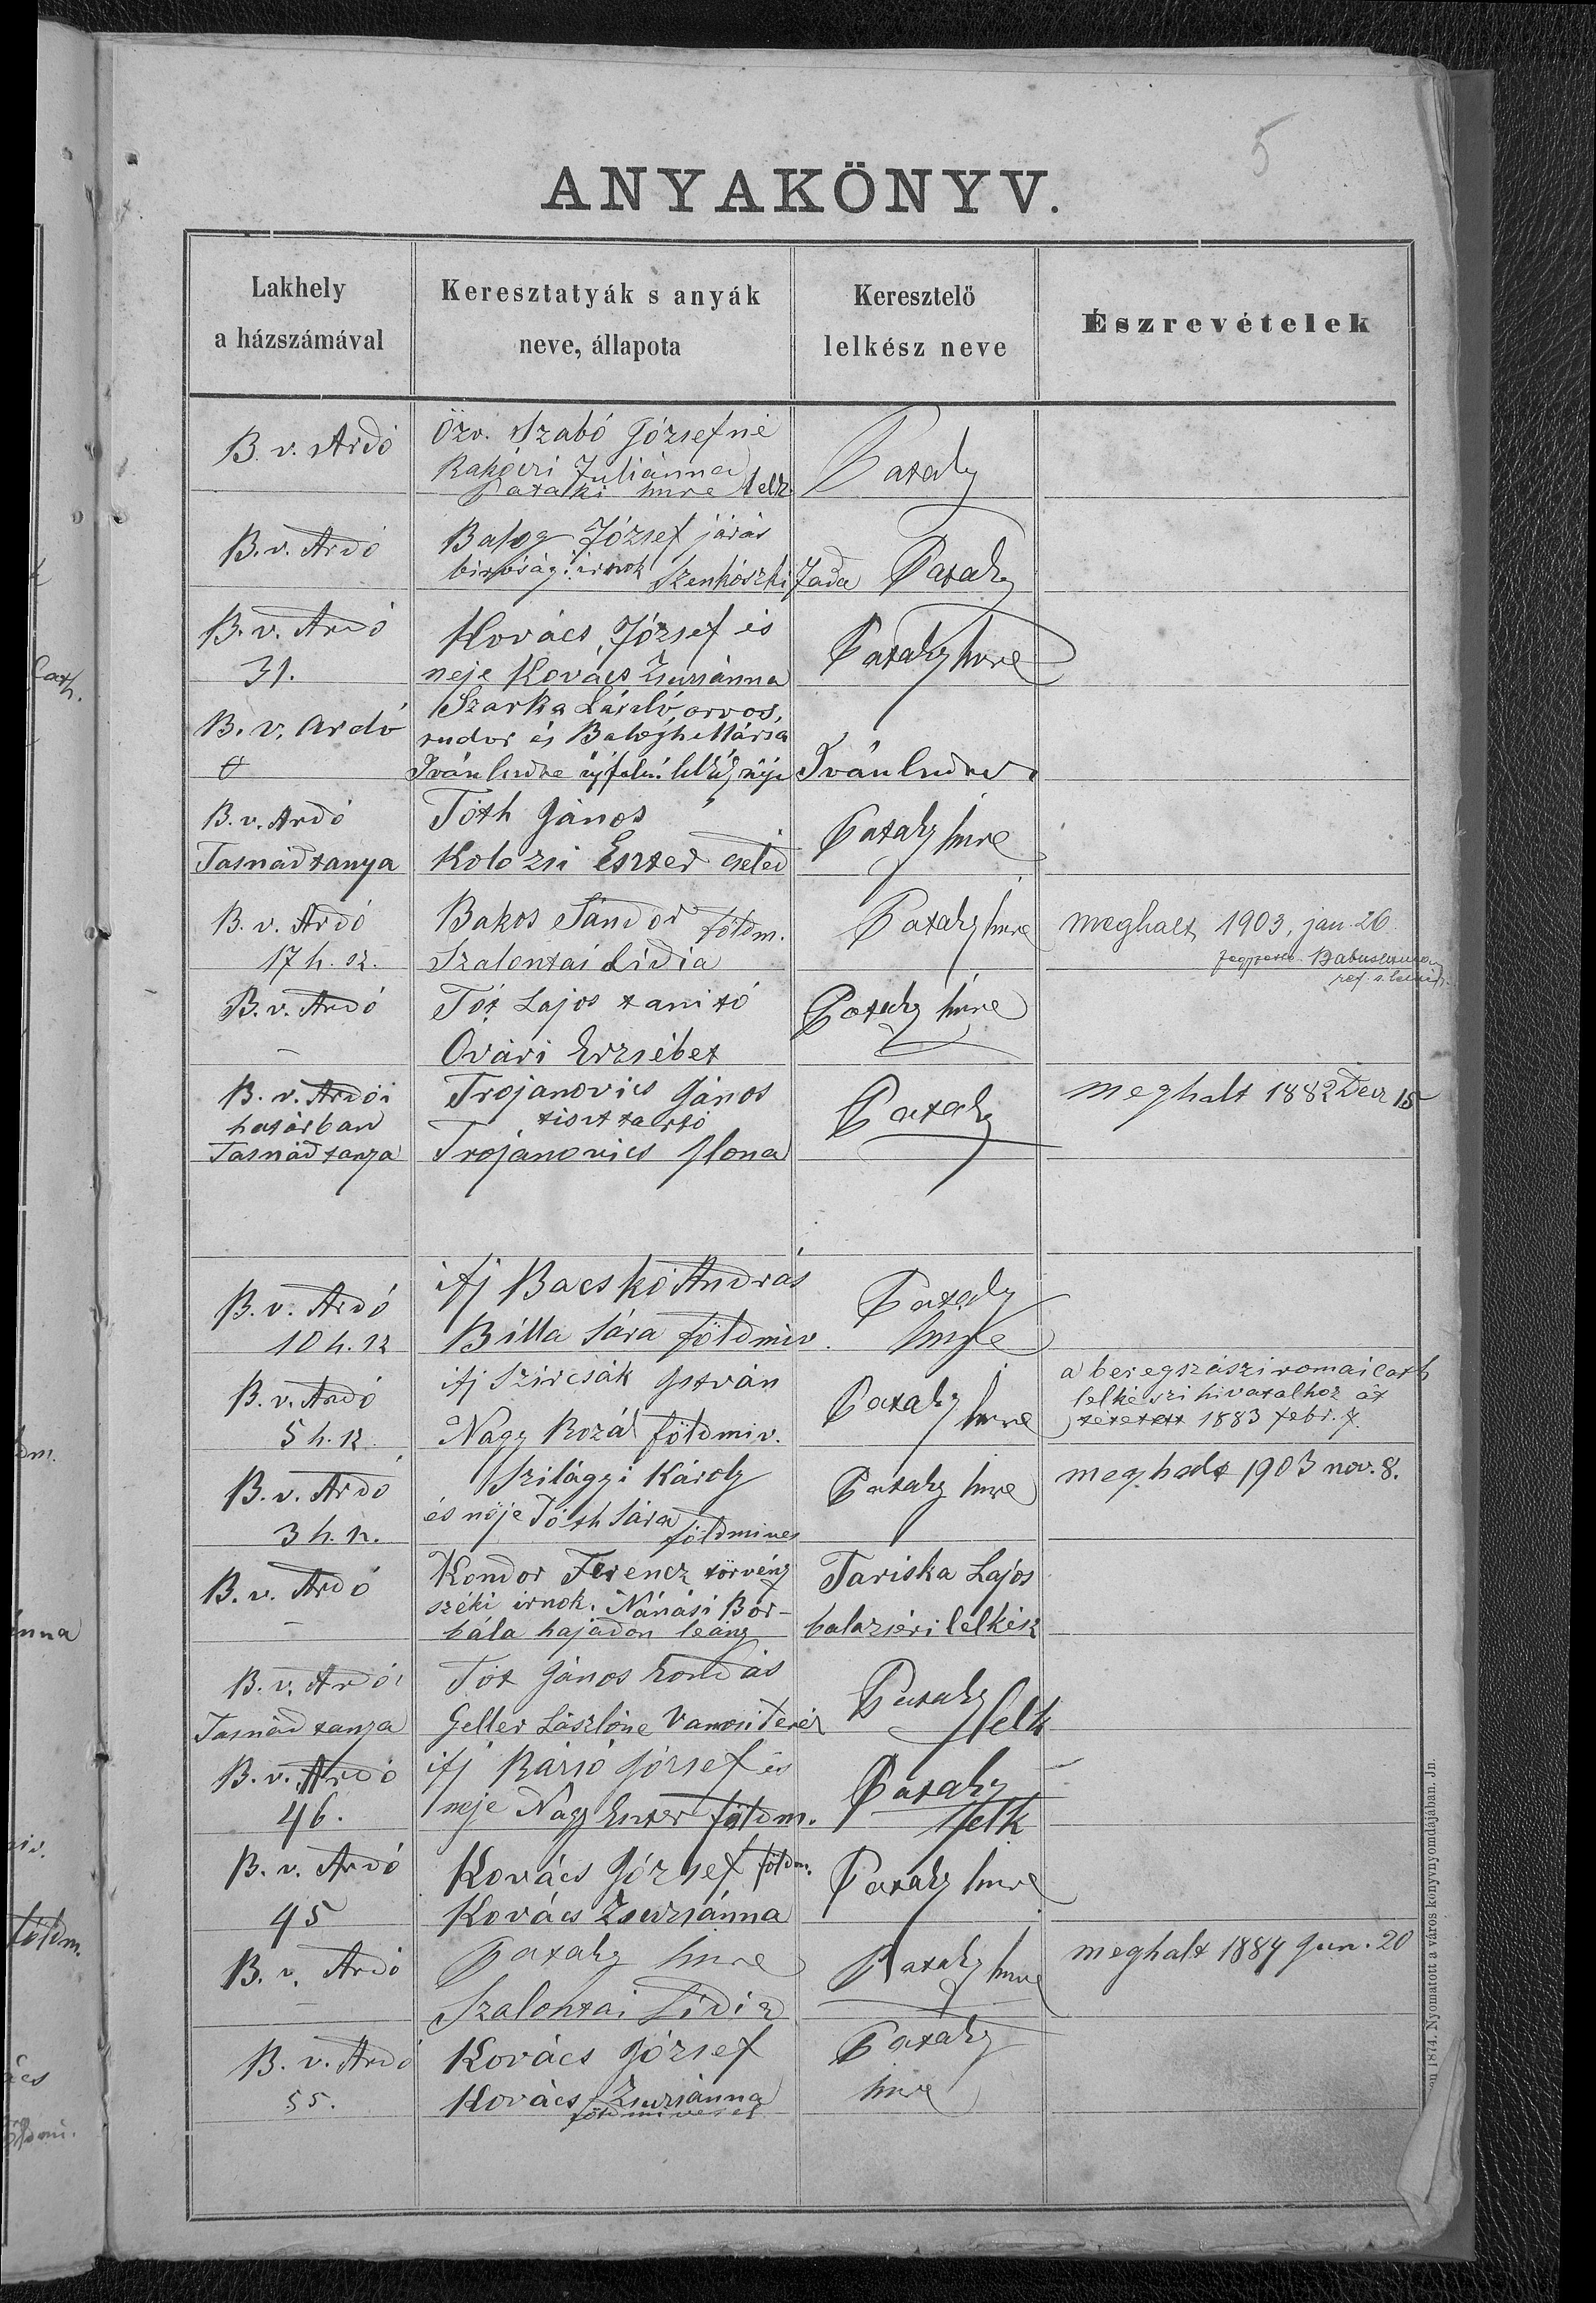 5
ANYAKÖNYV.
Lakhely
a házszámával
Keresztatyák s anyák
neve, állapota
Keresztelő
lelkész neve
Észrevételek
B. v. Ardó
Özv. Szabó Józsefné
Rakóczi Juliánna
Pataki Imre lelk
Pataky
B. v. Ardó
Balog József járás
birósági irnok
Pataky
B. v. Ardó
31.
Kovács József és
neje Kovács Zsuzsánna
Pataky Imre
B. v. Ardó
Szarka László, orvos,
tudor és Balogh Mária
Iván Endre
B. v. Ardó
Tasnádtanya
Tóth János
Kolozsi Eszter cseléd
Pataky Imre
B. v. Ardó
17 h. sz.
Bakos Sándor földm.
Szalontai Lidia
Pataky Imre
meghalt 1903, jan. 26
B. v. Ardó
Tót Lajos tanitó
Ovári Erzsébet
Pataky Imre
B. v. Ardói
határban
Tasnádtanya
Trojanovics János
tiszttartó
Trojánovics Ilona
Pataky
meghalt 1882 Dec 15
B. v. Ardó
10 h. sz
ifj Bacskó András
Billa Sára földmiv.
Pataky
Imre
B. v. Ardó
5 h. sz
ifj Szircsák István
Nagy Rozál földmiv.
Pataky Imre
a beregszászi romai cath
lelkészi hivatalhoz át
tétetett 1883 febr. 7.
B. v. Ardó
3 h. sz.
Szilágyi Károly
és nöje Tóth Sára
földmives
Pataky Imre
meghalt 1903 nov. 8.
B. v. Ardó
Kondor Ferencz törvény
széki irnok. Nánási Bor-
bála hajadon leány
Tariska Lajos
balazséri lelkész
B. v. Ardó
Tasnád tanya
Tót János
Geller Lászlóne Vamosi Teréz
Pataky
lelk
B. v. Ardó
46.
ifj József és
neje Nagy Eszter földm.
Pataky
lelk
B. v. Ardó
45
Kovács József földm.
Kovács Zsuzsánna
Pataky Imre
B. v. Ardó
Pataky Imre
Szalontai Lidia
Pataky Imre
meghalt 1884 Jun. 20
B. v. Ardó
55.
Kovács József
Kovács Zsuzsánna
földmivesek
Pataky
Imre
1874. Nyomatott a város könyvnyomdájában. Jn.